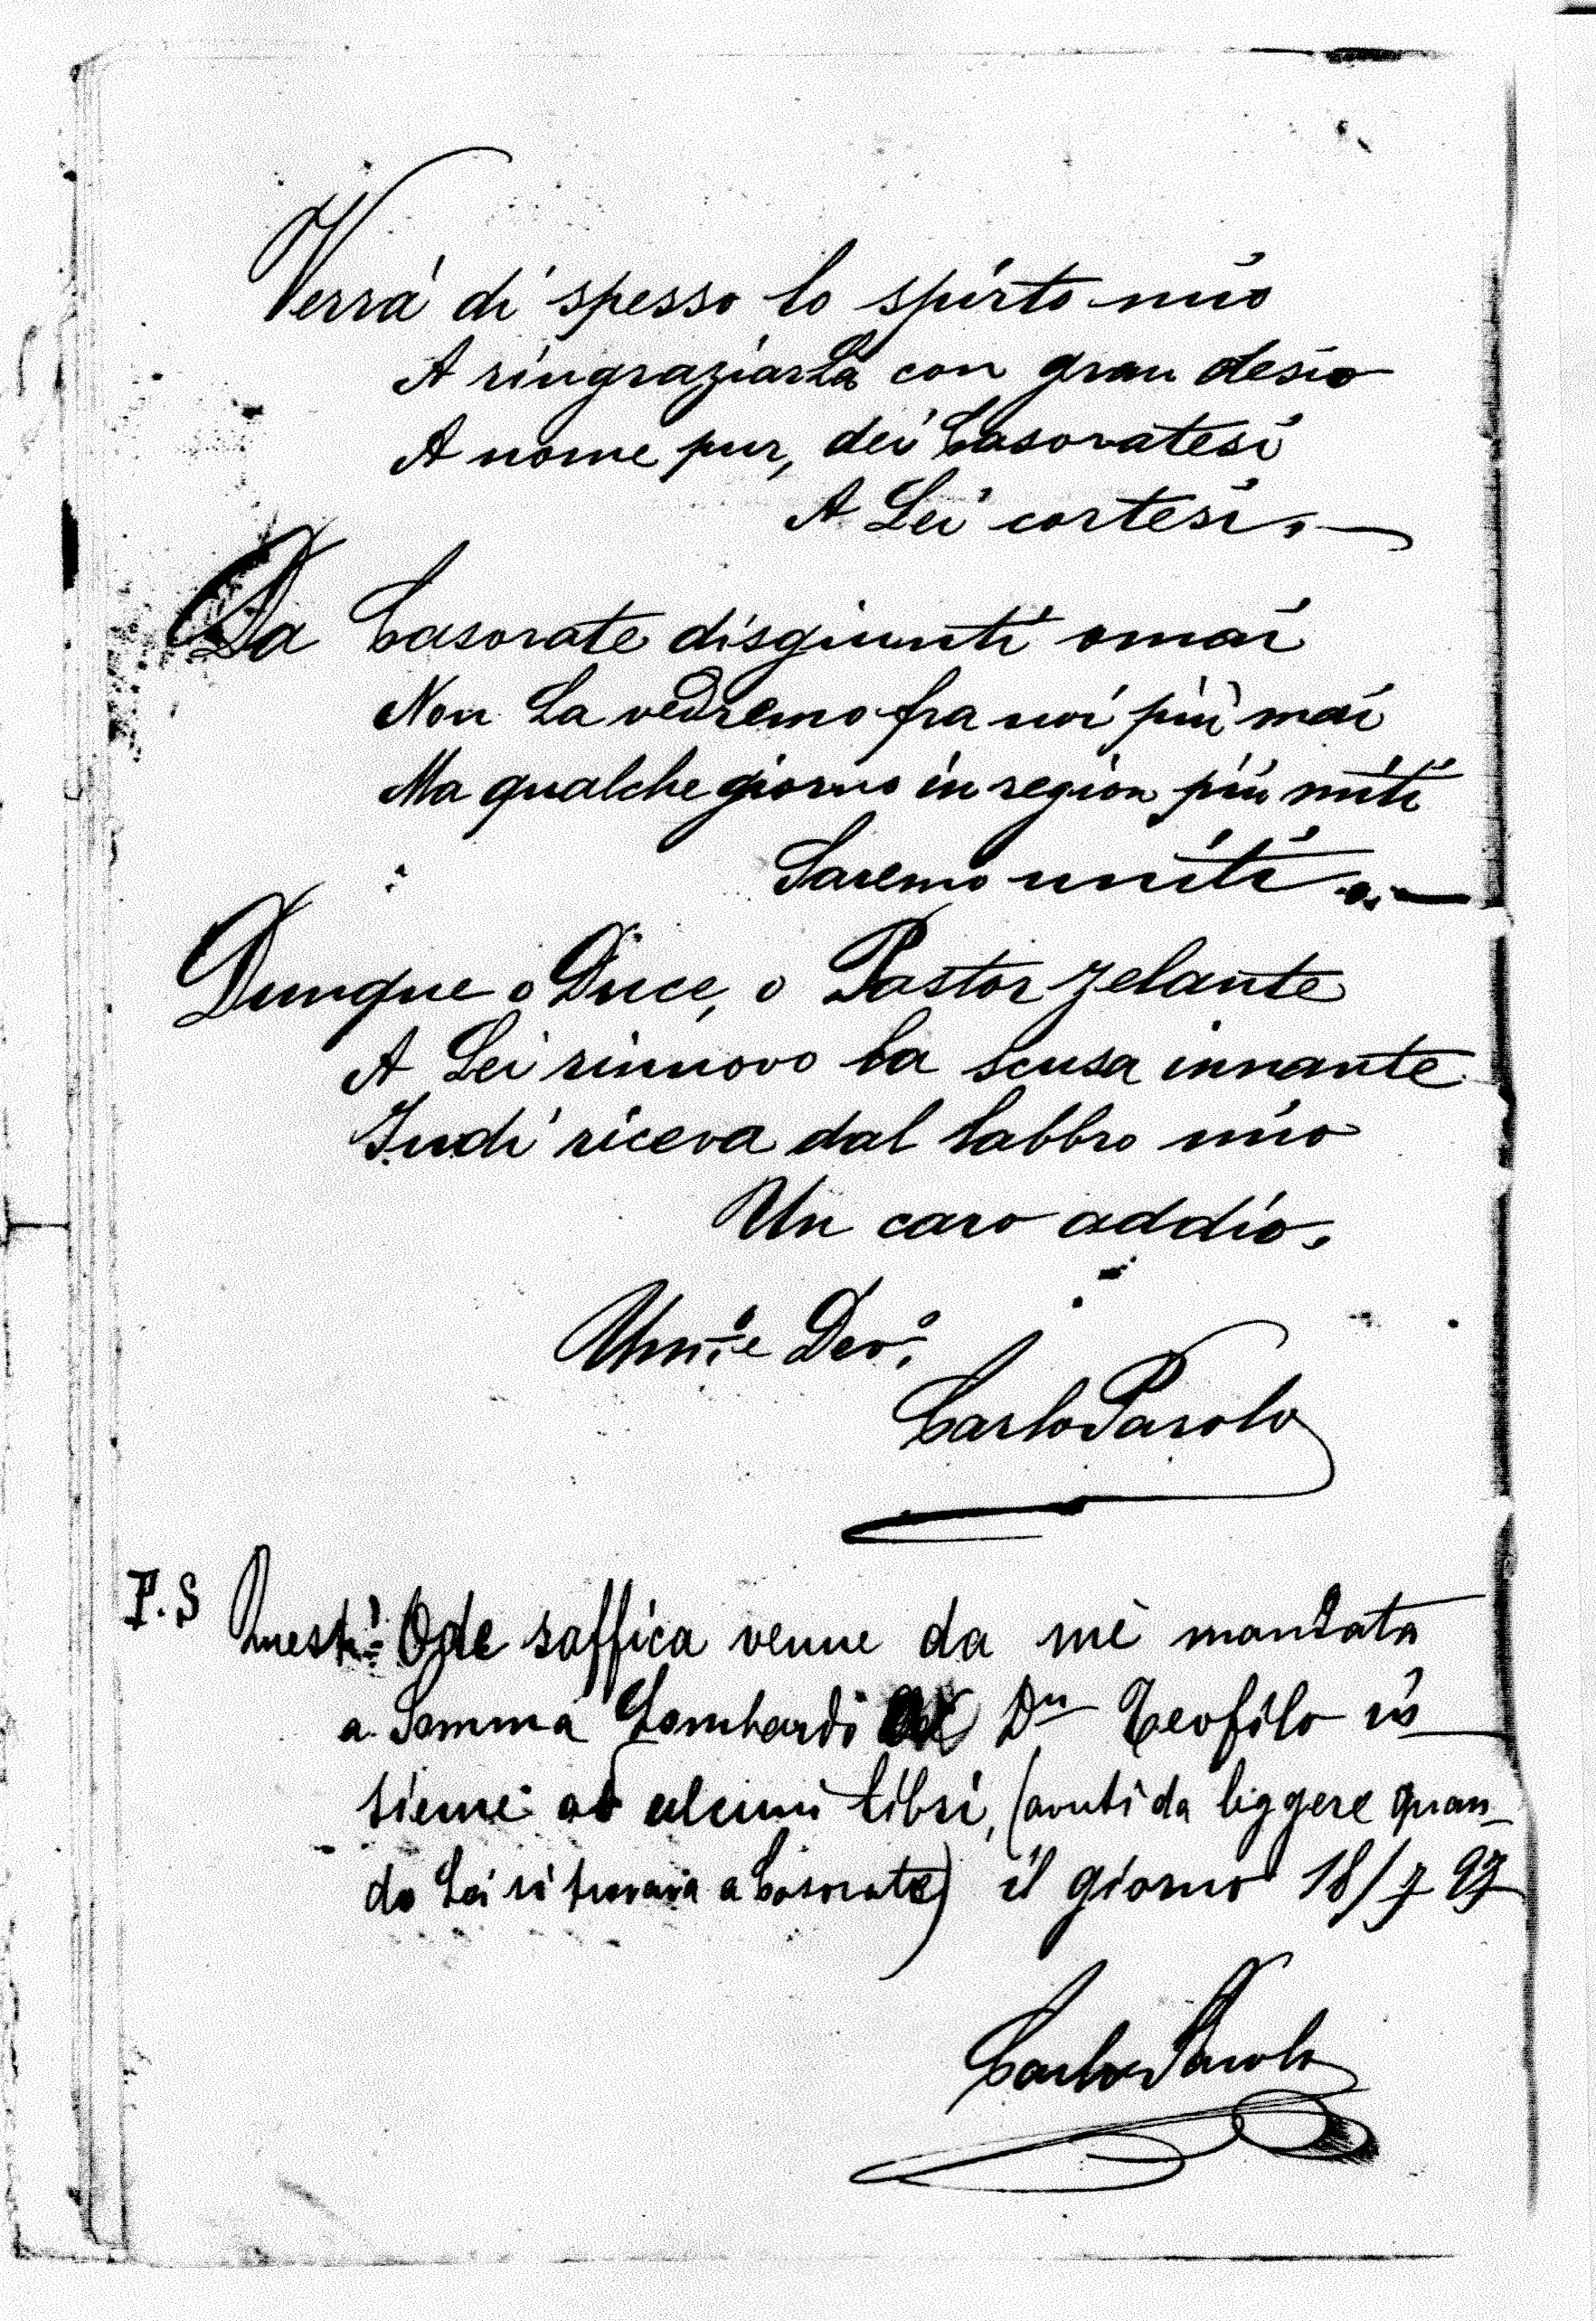 Verrà di spesso lo spirto mio
A ringraziarLa con gran desio
A nome pur, dei Casoratesi
A Lei cortesi. —
Da Casorate disgiunti omai
Non La vedremo fra noi più mai
Ma qualche giorno in region più miti
Saremo uniti. —
Dunque o Duce, o Pastor zelante
A Lei rinnovo la scusa innante
Indi riceva dal labbro mio
Un caro addio.
Um.o e Dev.o
Carlo Parolo
P.S Quest' Ode saffica venne da me mandata
a Somma Lombardo Dn Teofilo in
sieme ad alcuni libri, (avuti da leggere quan-
do Lei si trovava a Casorate) il giorno 18/7 97
Carlo Parolo